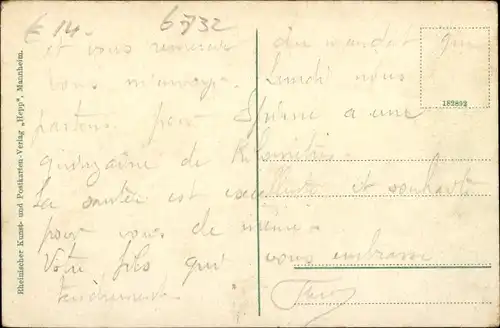 € 14.- 6732
et vous remercie du mandat que
vous m'envoyez. Lundi nous
partons pour Epine a une
quinzaine de Kilomètres.
La santée est excellente et souhaite
pour vous de même.
Votre fils qui vous embrasse
tendrement.
182892
Rheinischer Kunst- und Postkarten-Verlag „Hepp", Mannheim.